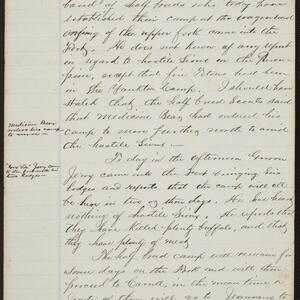 band of half breeds who today have
established their camp at the wagon road
crossing of the upper fork came into the
Fort. He does not know of any report
in regard to hostile Sioux in the Porcu-
pine, except that five Tetons had been
in the Yankton Camp. I should have
stated that the half breed Scouts said
that Medicine Bear had ordered his
camp to move further north to avoid
the hostile Sioux.
Medicine Bear
orders his camp
to move
Today in the afternoon
Jerry came into the Fort bringing his
lodges and reports that the camp will all
be here in two or three days. He has heard
nothing of hostile Sioux. He reports that
they have killed plenty buffalo, and that
they have plenty of meat.
The half breed camp will remain for
some days on the Fork and will then
proceed to Carroll, in the mean time a
part of them will go to